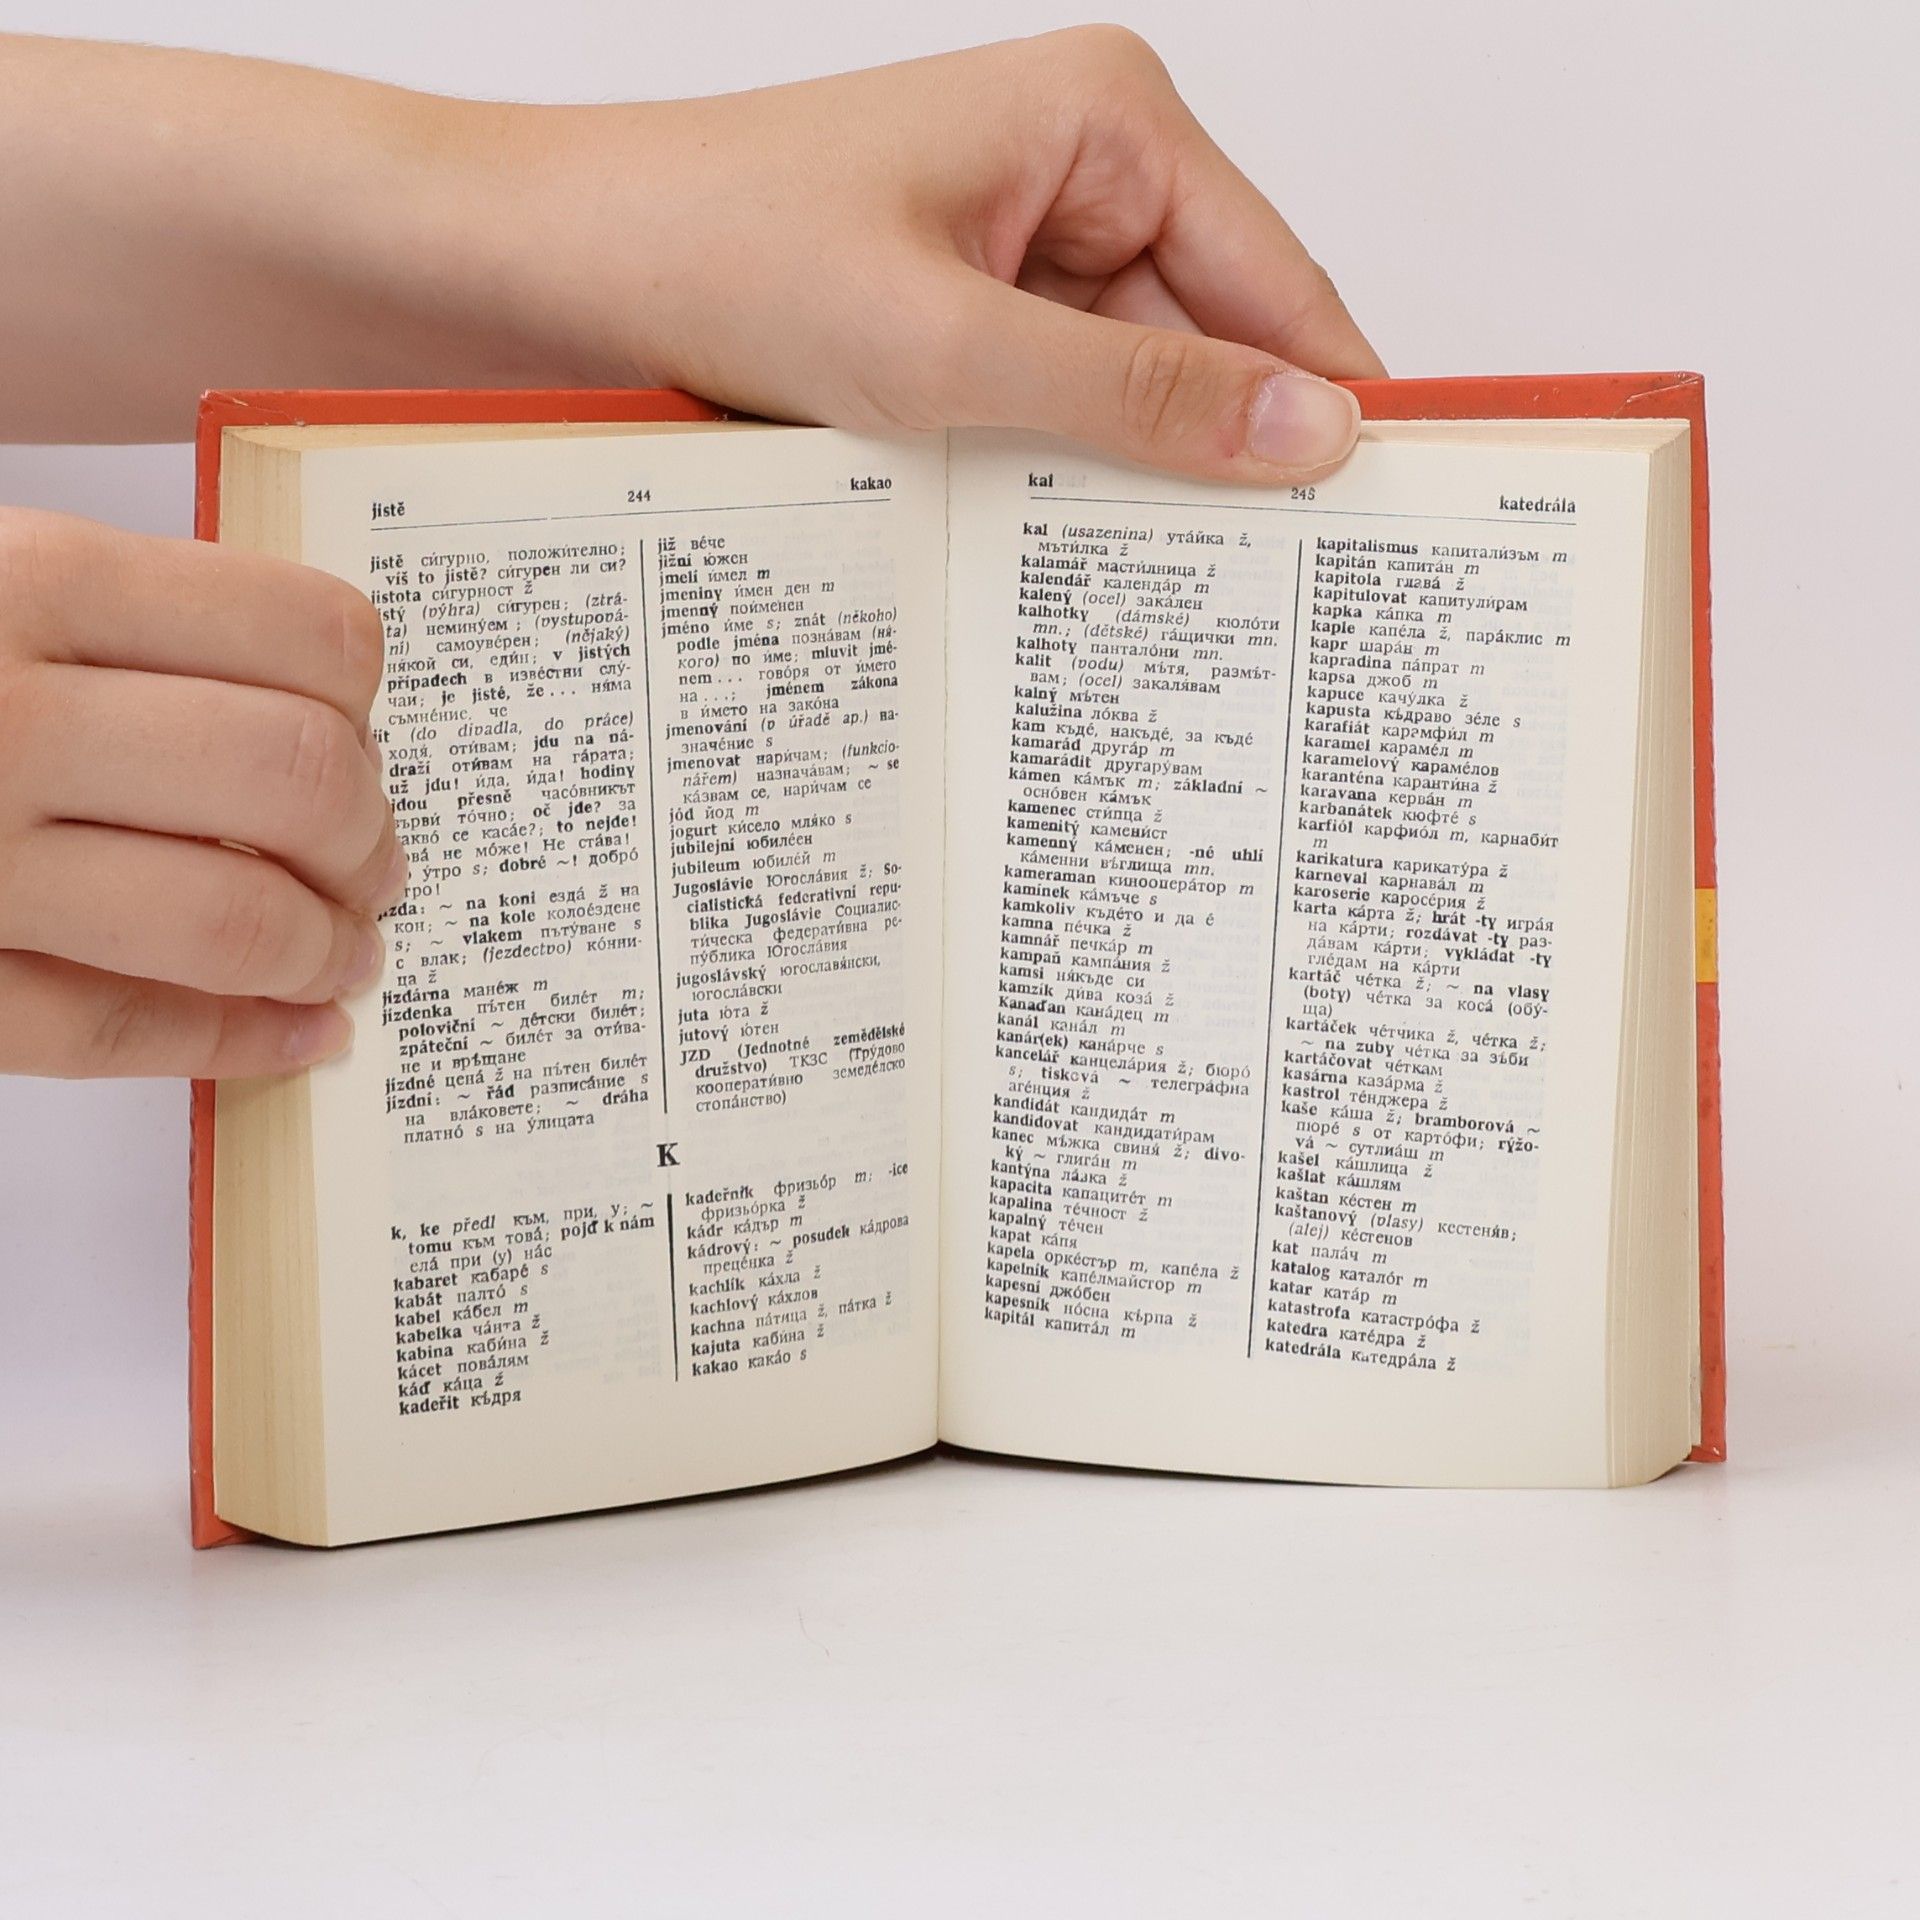 jistě
244
kakao
jistě сѝгурно, положѝтелно;
víš to jistě? сѝгурен ли си?
jistota сѝгурност ž
(výhra) сѝгурен; (ztrá-
неминýем; (vystupová-
самоувéрен; (nějaký)
ня́кой си, едѝн; v jistých
případech в извéстни слý-
чаи; je jisté, že... ня́ма
съмнéние, че
jít (do divadla, do práce)
ходя́, отѝвам; jdu na ná-
draží отѝвам на гáрата;
už jdu! ѝда, ѝда! hodiny
jdou přesně часóвникът
върви́ тóчно; oč jde? за
се касáе?; to nejde!
не мóже! Не стáва!
ýтро s; dobré ~! добрó
jízda: ~ na koni ездá ž на
кон; ~ na kole колоéздене
s; ~ vlakem пътýване s
с влак; (jezdectvo) кóнни-
ца ž
jízdárna манéж m
jízdenka пъ́тен билéт m;
poloviční ~ дéтски билéт;
zpáteční ~ билéт за отѝва-
не и връ́щане
jízdné ценá ž на пъ́тен билéт
jízdní: ~ řád разписáние s
на влáковете; ~ dráha
платнó s на ýлицата
již вéче
jižní ю́жен
jmelí ѝмел m
jmeniny ѝмен ден m
jmenný поѝменен
jméno ѝме s; znát (někoho)
podle jména познáвам (ня́-
кого) по ѝме; mluvit jmé-
nem... говóря от ѝмето
на...; jménem zákona
в ѝмето на закóна
jmenování (v úřadě ap.) на-
значéние s
jmenovat нарѝчам; (funkcio-
nářem) назначáвам; ~ se
кáзвам се, нарѝчам се
jód йод m
jogurt кѝсело мля́ко s
jubilejní юбилéен
jubileum юбилéй m
Jugoslávie Югослáвия ž; So-
cialistická federativní repu-
blika Jugoslávie Социалис-
тѝческа федератѝвна ре-
пýблика Югослáвия
jugoslávský югославя́нски,
югослáвски
juta ю́та ž
jutový ю́тен
JZD (Jednotné zemědělské
družstvo) ТКЗС (Трýдово
кооператѝвно земедéлско
стопáнство)
K
k, ke předl към, при, у; ~
tomu към товá; pojď k nám
елá при (у) нас
kabaret кабарé s
kabát палтó s
kabel кáбел m
kabelka чáнта ž
kabina кабѝна ž
kácet повáлям
káď кáца ž
kadeřit къ́дря
kadeřník фризьóр m; -ice
фризьóрка ž
kádr кáдър m
kádrový: ~ posudek кáдрова
прецéнка ž
kachlík кáхла ž
kachlový кáхлов
kachna пáтица ž, пáтка ž
kajuta кабѝна ž
kakao какáо s
kal
245
katedrála
kal (usazenina) утáйка ž,
мътѝлка ž
kalamář мастѝлница ž
kalendář календáр m
kalený (ocel) закáлен
kalhotky (dámské) кюлóти
mn.; (dětské) гáщички mn.
kalhoty панталóни mn.
kalit (vodu) мъ́тя, размъ́т-
вам; (ocel) закаля́вам
kalný мъ́тен
kalužina лóква ž
kam къдé, накъдé, за къдé
kamarád другáр m
kamarádit другарýвам
kámen кáмък m; základní ~
оснóвен кáмък
kamenec стѝпца ž
kamenitý каменѝст
kamenný кáменен; -né uhlí
кáменни въ́глища mn.
kameraman кинооперáтор m
kamínek кáмъче s
kamkoliv къдéто и да é
kamna пéчка ž
kamnář печкáр m
kampaň кампáния ž
kamsi ня́къде си
kamzík дѝва козá ž
Kanaďan канáдец m
kanál канáл m
kanár(ek) канáрче s
kancelář канцелáрия ž; бюрó
s; tisková ~ телегрáфна
агéнция ž
kandidát кандидáт m
kandidovat кандидатѝрам
kanec мъ́жка свиня́ ž; divo-
ký ~ глигáн m
kantýna лáвка ž
kapacita капацитéт m
kapalina тéчност ž
kapalný тéчен
kapat кáпя
kapela оркéстър m, капéла ž
kapelník капéлмайстор m
kapesní джóбен
kapesník нóсна къ́рпа ž
kapitál капитáл m
kapitalismus капиталѝзъм m
kapitán капитáн m
kapitola главá ž
kapitulovat капитулѝрам
kapka кáпка m
kaple капéла ž, парáклис m
kapr шарáн m
kapradina пáпрат m
kapsa джоб m
kapuce качýлка ž
kapusta къ́драво зéле s
karafiát карамфѝл m
karamel карамéл m
karamelový карамéлов
karanténa карантѝна ž
karavana кервáн m
karbanátek кюфтé s
karfiól карфиóл m, карнабѝт
m
karikatura карикатýра ž
karneval карнавáл m
karoserie каросéрия ž
karta кáрта ž; hrát -ty игрáя
на кáрти; rozdávat -ty раз-
дáвам кáрти; vykládat -ty
глéдам на кáрти
kartáč чéтка ž; ~ na vlasy
(boty) чéтка за косá (обý-
ща)
kartáček чéтчика ž, чéтка ž;
~ na zuby чéтка за зъ́би
kartáčovat чéткам
kasárna казáрма ž
kastrol тéнджера ž
kaše кáша ž; bramborová ~
пюрé s от картóфи; rýžo-
vá ~ сутлиáш m
kašel кáшлица ž
kašlat кáшлям
kaštan кéстен m
kaštanový (vlasy) кестеня́в;
(alej) кéстенов
kat палáч m
katalog каталóг m
katar катáр m
katastrofa катастрóфа ž
katedra катéдра ž
katedrála катедрáла ž